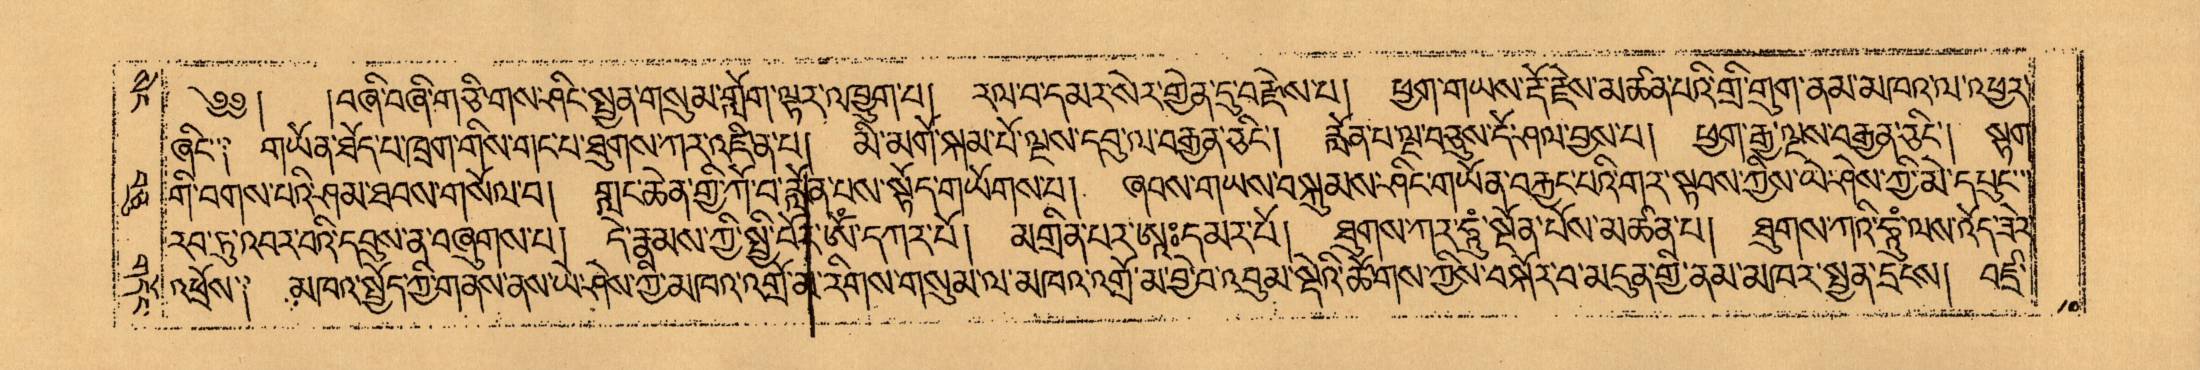 ༄༅། །བཞི་བཞི་གཙིགས་ཤིང་སྤྱན་གསུམ་གློག་ལྟར་འཁྱུག་པ། རལ་བ་དམར་སེར་གྱེན་དུ་བརྫེས་པ། ཕྱག་གཡས་རྡོ་རྗེས་མཚན་པའི་གྲི་གུག་ནམ་མཁའ་ལ་འཕྱར་
ཞིང་༑ གཡོན་ཐོད་པ་ཁྲག་གིས་གང་པ་ཐུགས་ཀར་འཛིན་པ། མི་མགོ་སྐམ་པོ་ལྔས་དབུ་ལ་བརྒྱན་ཅིང་། རློན་པ་ལྔ་བཅུས་དོ་ཤལ་བྱས་པ། ཕྱག་རྒྱ་ལྔས་བརྒྱན་ཅིང་། སྟག་
གི་བགས་པའི་ཤམ་ཐབས་གསོལ་བ། གླང་ཆེན་གྱི་ཀོ་བ་རློན་པས་སྟོད་གཡོགས་པ། ཞབས་གཡས་བསྐུམས་ཤིང་གཡོན་བརྐྱང་པའི་གར་སྟབས་ཀྱིས་ཡེ་ཤེས་ཀྱི་མེ་དཔུང་
རབ་ཏུ་འབར་བའི་དབུས་ན་བཞུགས་པ། དེ་རྣམས་ཀྱི་སྤྱི་བོར་ཨོཾ་དཀར་པོ། མགྲིན་པར་ཨཱཿདམར་པོ། ཐུགས་ཀར་ཧཱུྃ་སྔོན་པོས་མཚན་པ། ཐུགས་ཀའི་ཧཱུྃ་ལས་འོད་ཟེར་
འཕྲོས་༑ མཁའ་སྤྱོད་ཀྱི་གནས་ནས་ཡེ་ཤེས་ཀྱི་མཁའ་འགྲོ་མ་རིགས་གསུམ་ལ་མཁའ་འགྲོ་མ་བྱེ་བ་འབུམ་སྡེའི་ཚོགས་ཀྱིས་བསྐོར་བ་མདུན་གྱི་ནམ་མཁར་སྤྱན་དྲངས། བཛྲ་